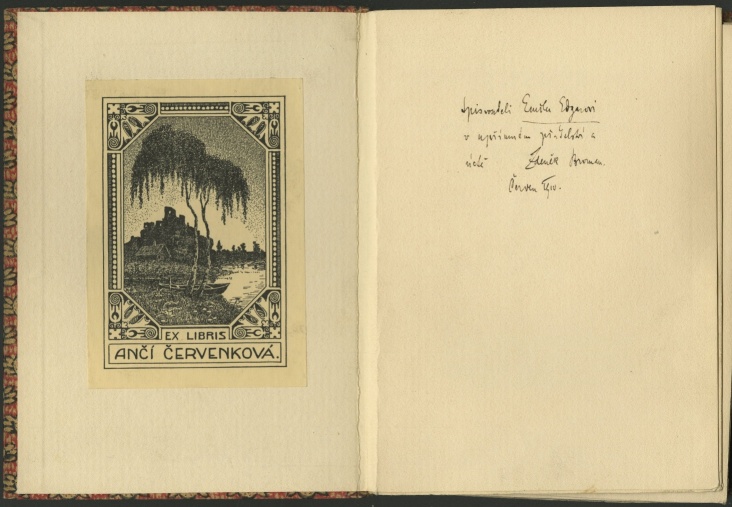 EX LIBRIS
ANČÍ ČERVENKOVÁ.
spisovateli Emilu Edgarovi
v upřímném přátelství a
úctě Zdeněk
Červen